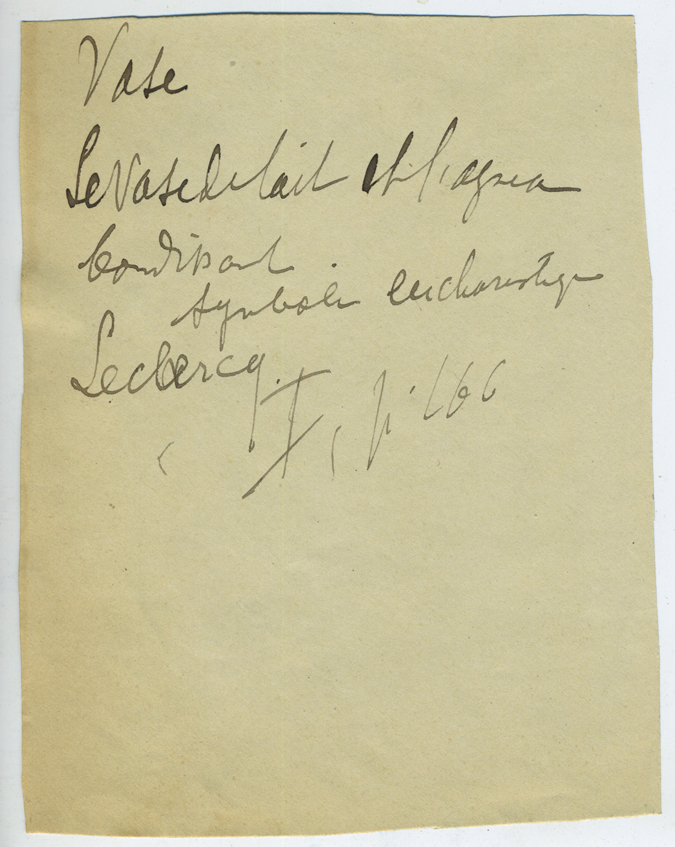 Vase
Le Vase de lait et l'agneau
bondissant
symbole eucharistique
Leclercq.
I, p. 166